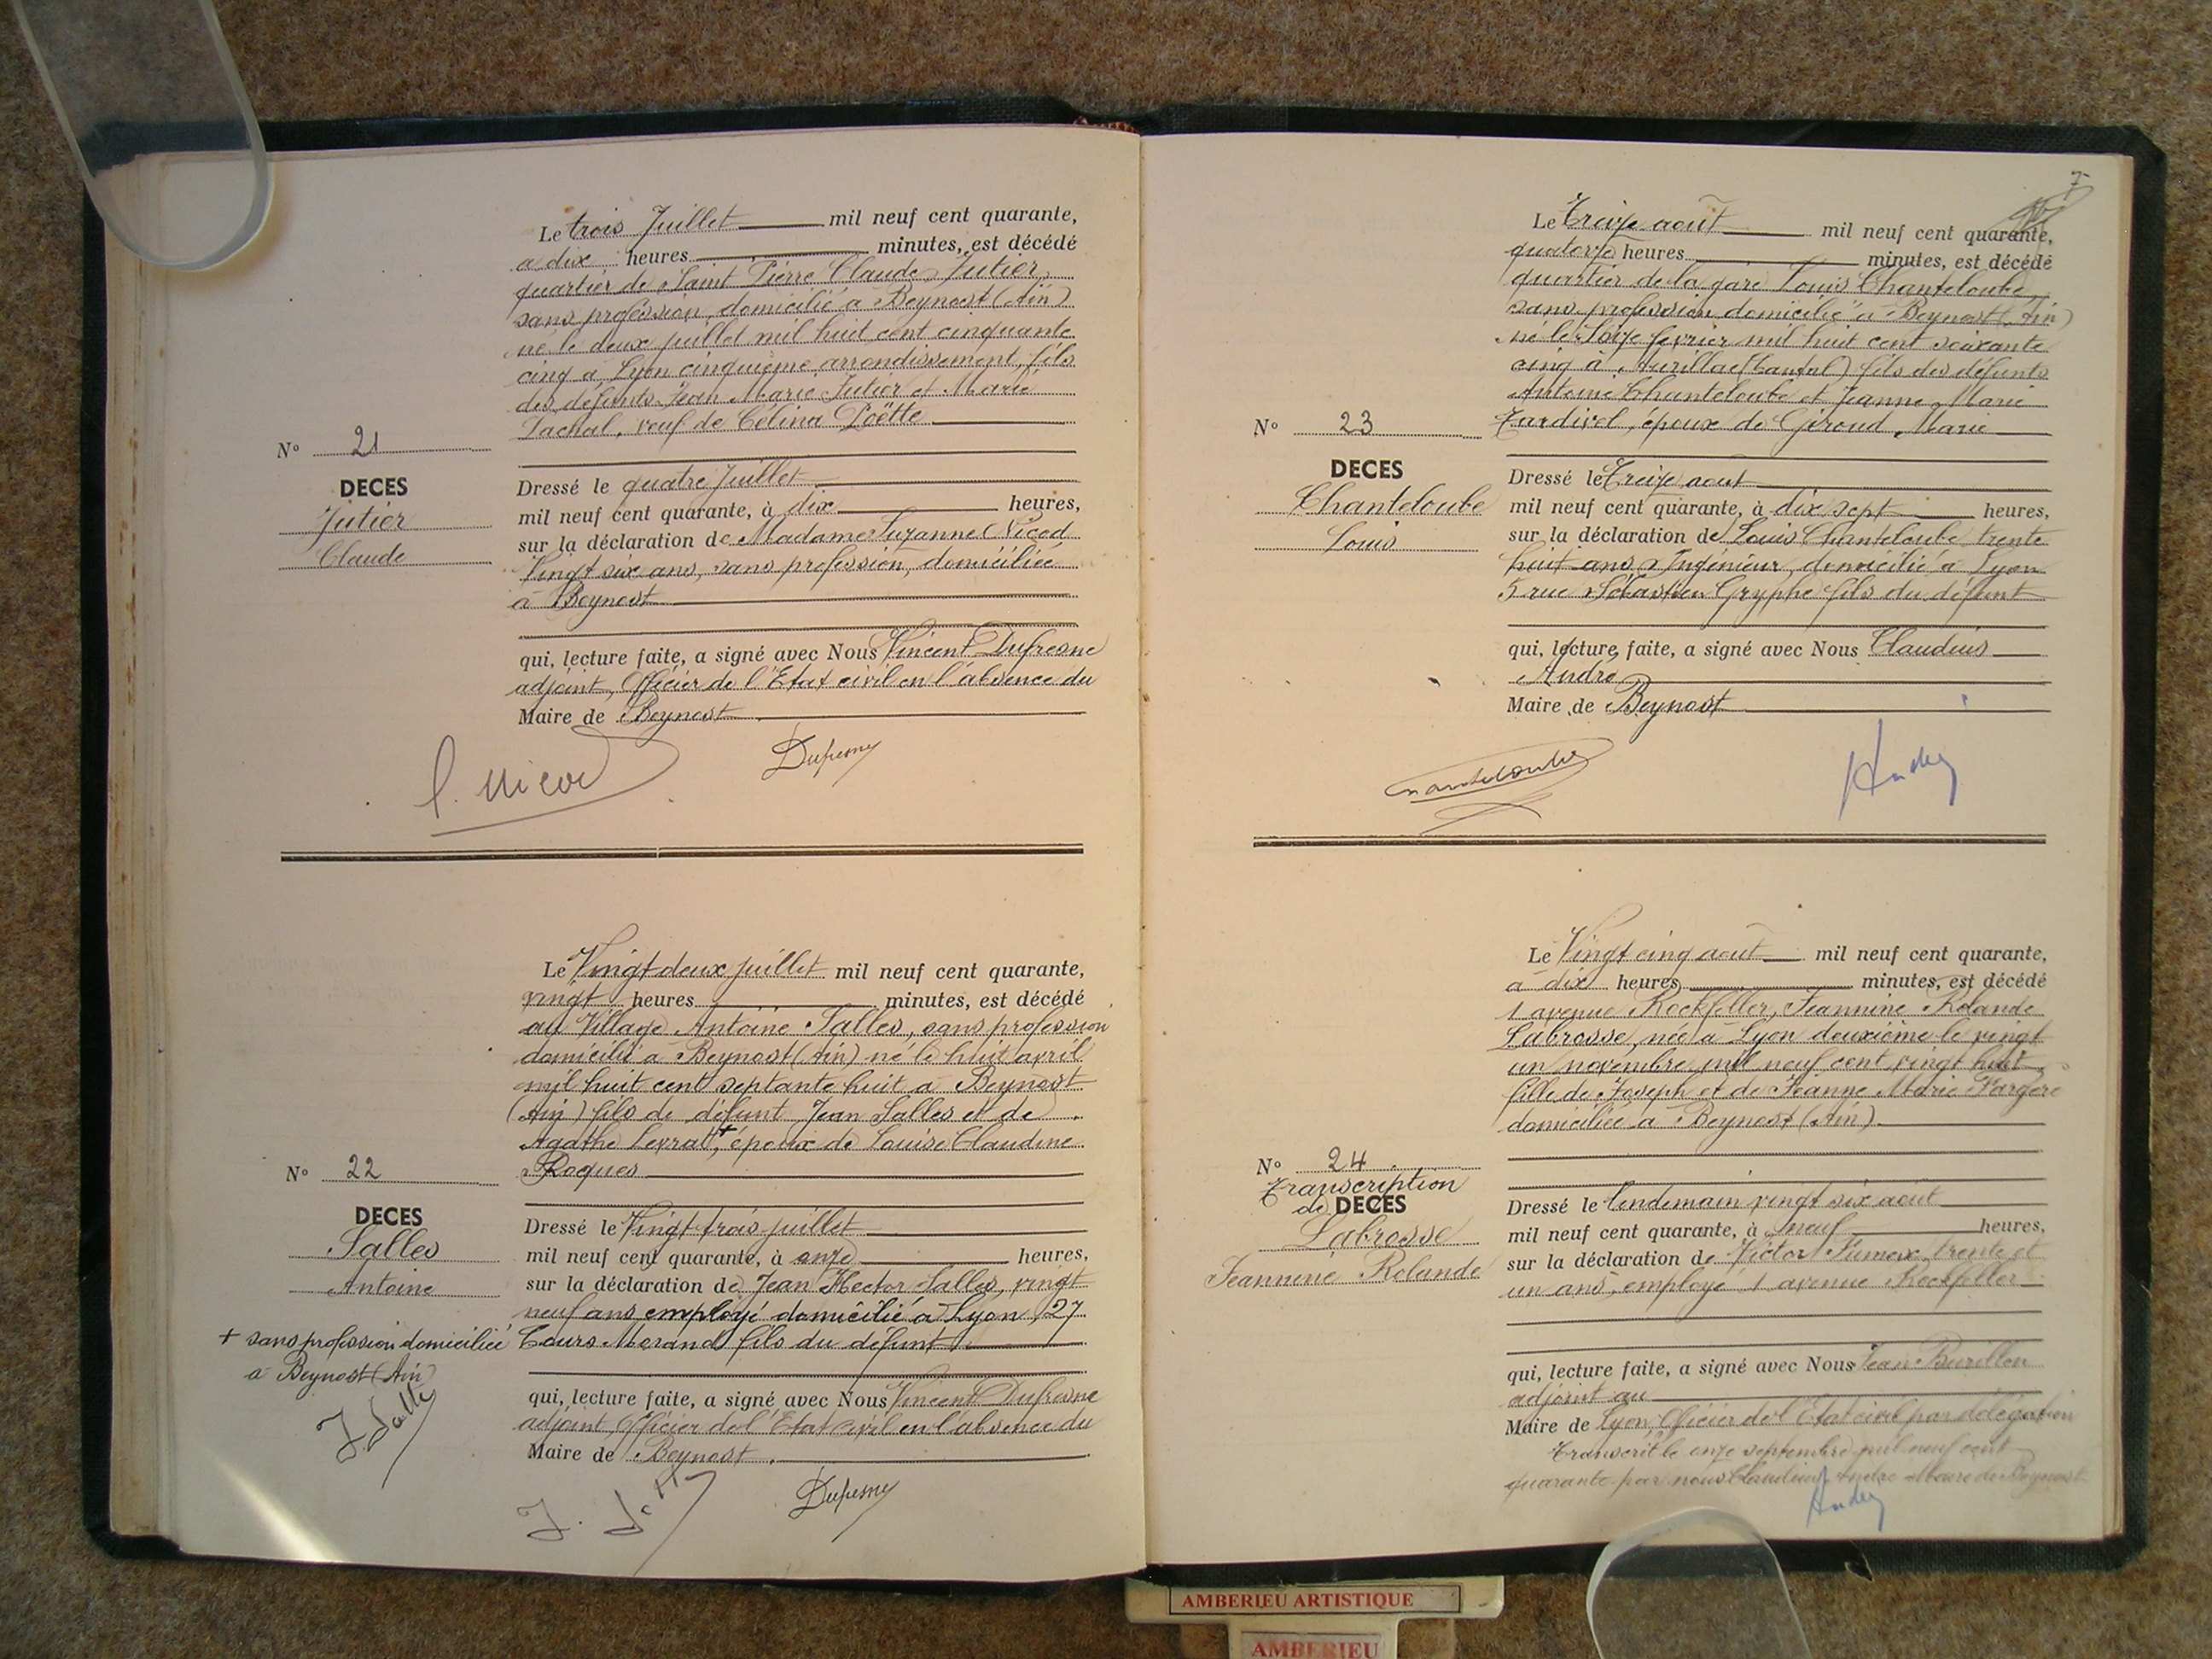 Le trois Juillet mil neuf cent quarante,
a dix heures minutes, est décédé
quartier de Saint Pierre Claude Jutier,
sans profession, domicilié à Beynost (Ain)
né le deux juillet mil huit cent cinquante
cinq à Lyon cinquième arrondissement, fils
des défunts Jean Marie Jutier et Marie
Lachal, veuf de Célina Poëtte
Nº 21
DECES
Jutier
Claude
Dressé le quatre Juillet
mil neuf cent quarante, à dix heures,
sur la déclaration de Madame Suzanne Nicod
Vingt six ans, sans profession, domiciliée
à Beynost
qui, lecture faite, a signé avec Nous Vincent Dufresne
adjoint, Officier de l'Etat civil en l'absence du
Maire de Beynost
Le Vingt deux juillet mil neuf cent quarante,
vingt heures minutes, est décédé
au Village Antoine Salles, sans profession
domicilié à Beynost (Ain) né le huit avril
mil huit cent septante huit à Beynost
(Ain) fils de défunt Jean Salles et de
Agathe Levrat +, époux de Louise Claudine
Roques
Nº 22
DECES
Salles
Antoine
+ sans profession domiciliée
à Beynost (Ain)
J. Salles
Dressé le Vingt trois juillet
mil neuf cent quarante, à onze heures,
sur la déclaration de Jean Hector Salles, vingt
neuf ans employé domicilié à Lyon, 27
Cours Morand fils du défunt
qui, lecture faite, a signé avec Nous Vincent Dufresne
adjoint, Officier de l'Etat civil en l'absence du
Maire de Beynost
7
Le Treize août mil neuf cent quarante,
quatorze heures minutes, est décédé
quartier de la gare Louis Chanteloube
sans profession domicilié à Beynost (Ain)
né le seize février mil huit cent soixante
cinq à Aurillac (Cantal) fils des défunts
Antoine Chanteloube et Jeanne Marie
Tardivel, époux de Giroud Marie
Nº 23
DECES
Chanteloube
Louis
Dressé le Treize aout
mil neuf cent quarante, à dix sept heures,
sur la déclaration de Louis Chanteloube trente
huit ans, Ingénieur, domicilié à Lyon
5 rue Sébastien Gryphe fils du défunt
qui, lecture faite, a signé avec Nous Claudius
André
Maire de Beynost
Chanteloube
André
Le Vingt cinq août mil neuf cent quarante,
à dix heures minutes, est décédé
1 avenue Rockfeller, Jeannine Rolande
Labrosse, née à Lyon deuxième le vingt
un novembre mil neuf cent vingt huit
fille de Joseph et de Jeanne Marie Fargère
domiciliée à Beynost (Ain).
Nº 24
Transcription
de DECES
Labrosse
Jeannine Rolande
Dressé le lendemain vingt six août
mil neuf cent quarante, à neuf heures,
sur la déclaration de Victor trente et
un ans, employé 1 avenue Rockfeller
qui, lecture faite, a signé avec Nous Jean
adjoint au
Maire de Lyon, Officier de l'Etat civil par délégation
Transcrit le onze septembre mil neuf cent
quarante par nous Claudius André Maire de Beynost
André
AMBERIEU ARTISTIQUE
AMBERIEU